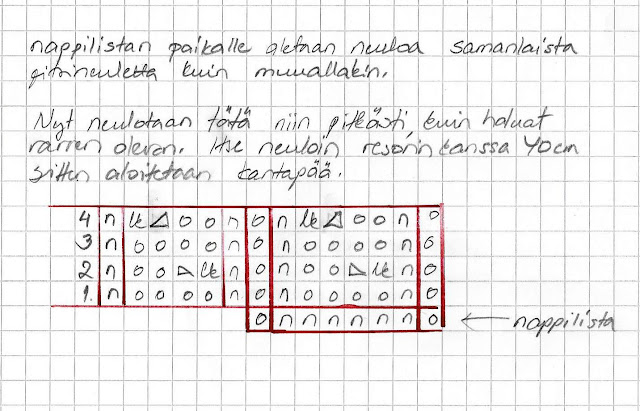 nappilistan paikalle aletaan neuloa samanlaista
pitsineuletta kuin muuallakin.
Nyt neulotaan tätä niin pitkästi, kuin haluat
varren olevan. Itse neuloin resorin kanssa 40cm
sitten aloitetaan kantapää.
4 n lk ⊿ o o n o n lk ⊿ o o n o
3 n o o o o n o n o o o o n o
2 n o o ◺ lk n o n o o ◺ lk n o
1. n o o o o n o n o o o o n o
o n n n n n n o ← nappilista